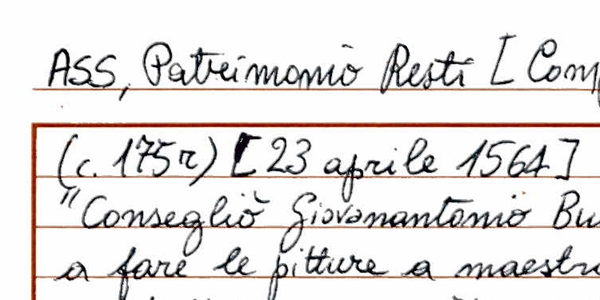 ASS, Patrimonio Resti [ Com
(c. 175r) [23 aprile 1564]
"Conseglio Giovanantonio Bu
a fare le pitture a maestro